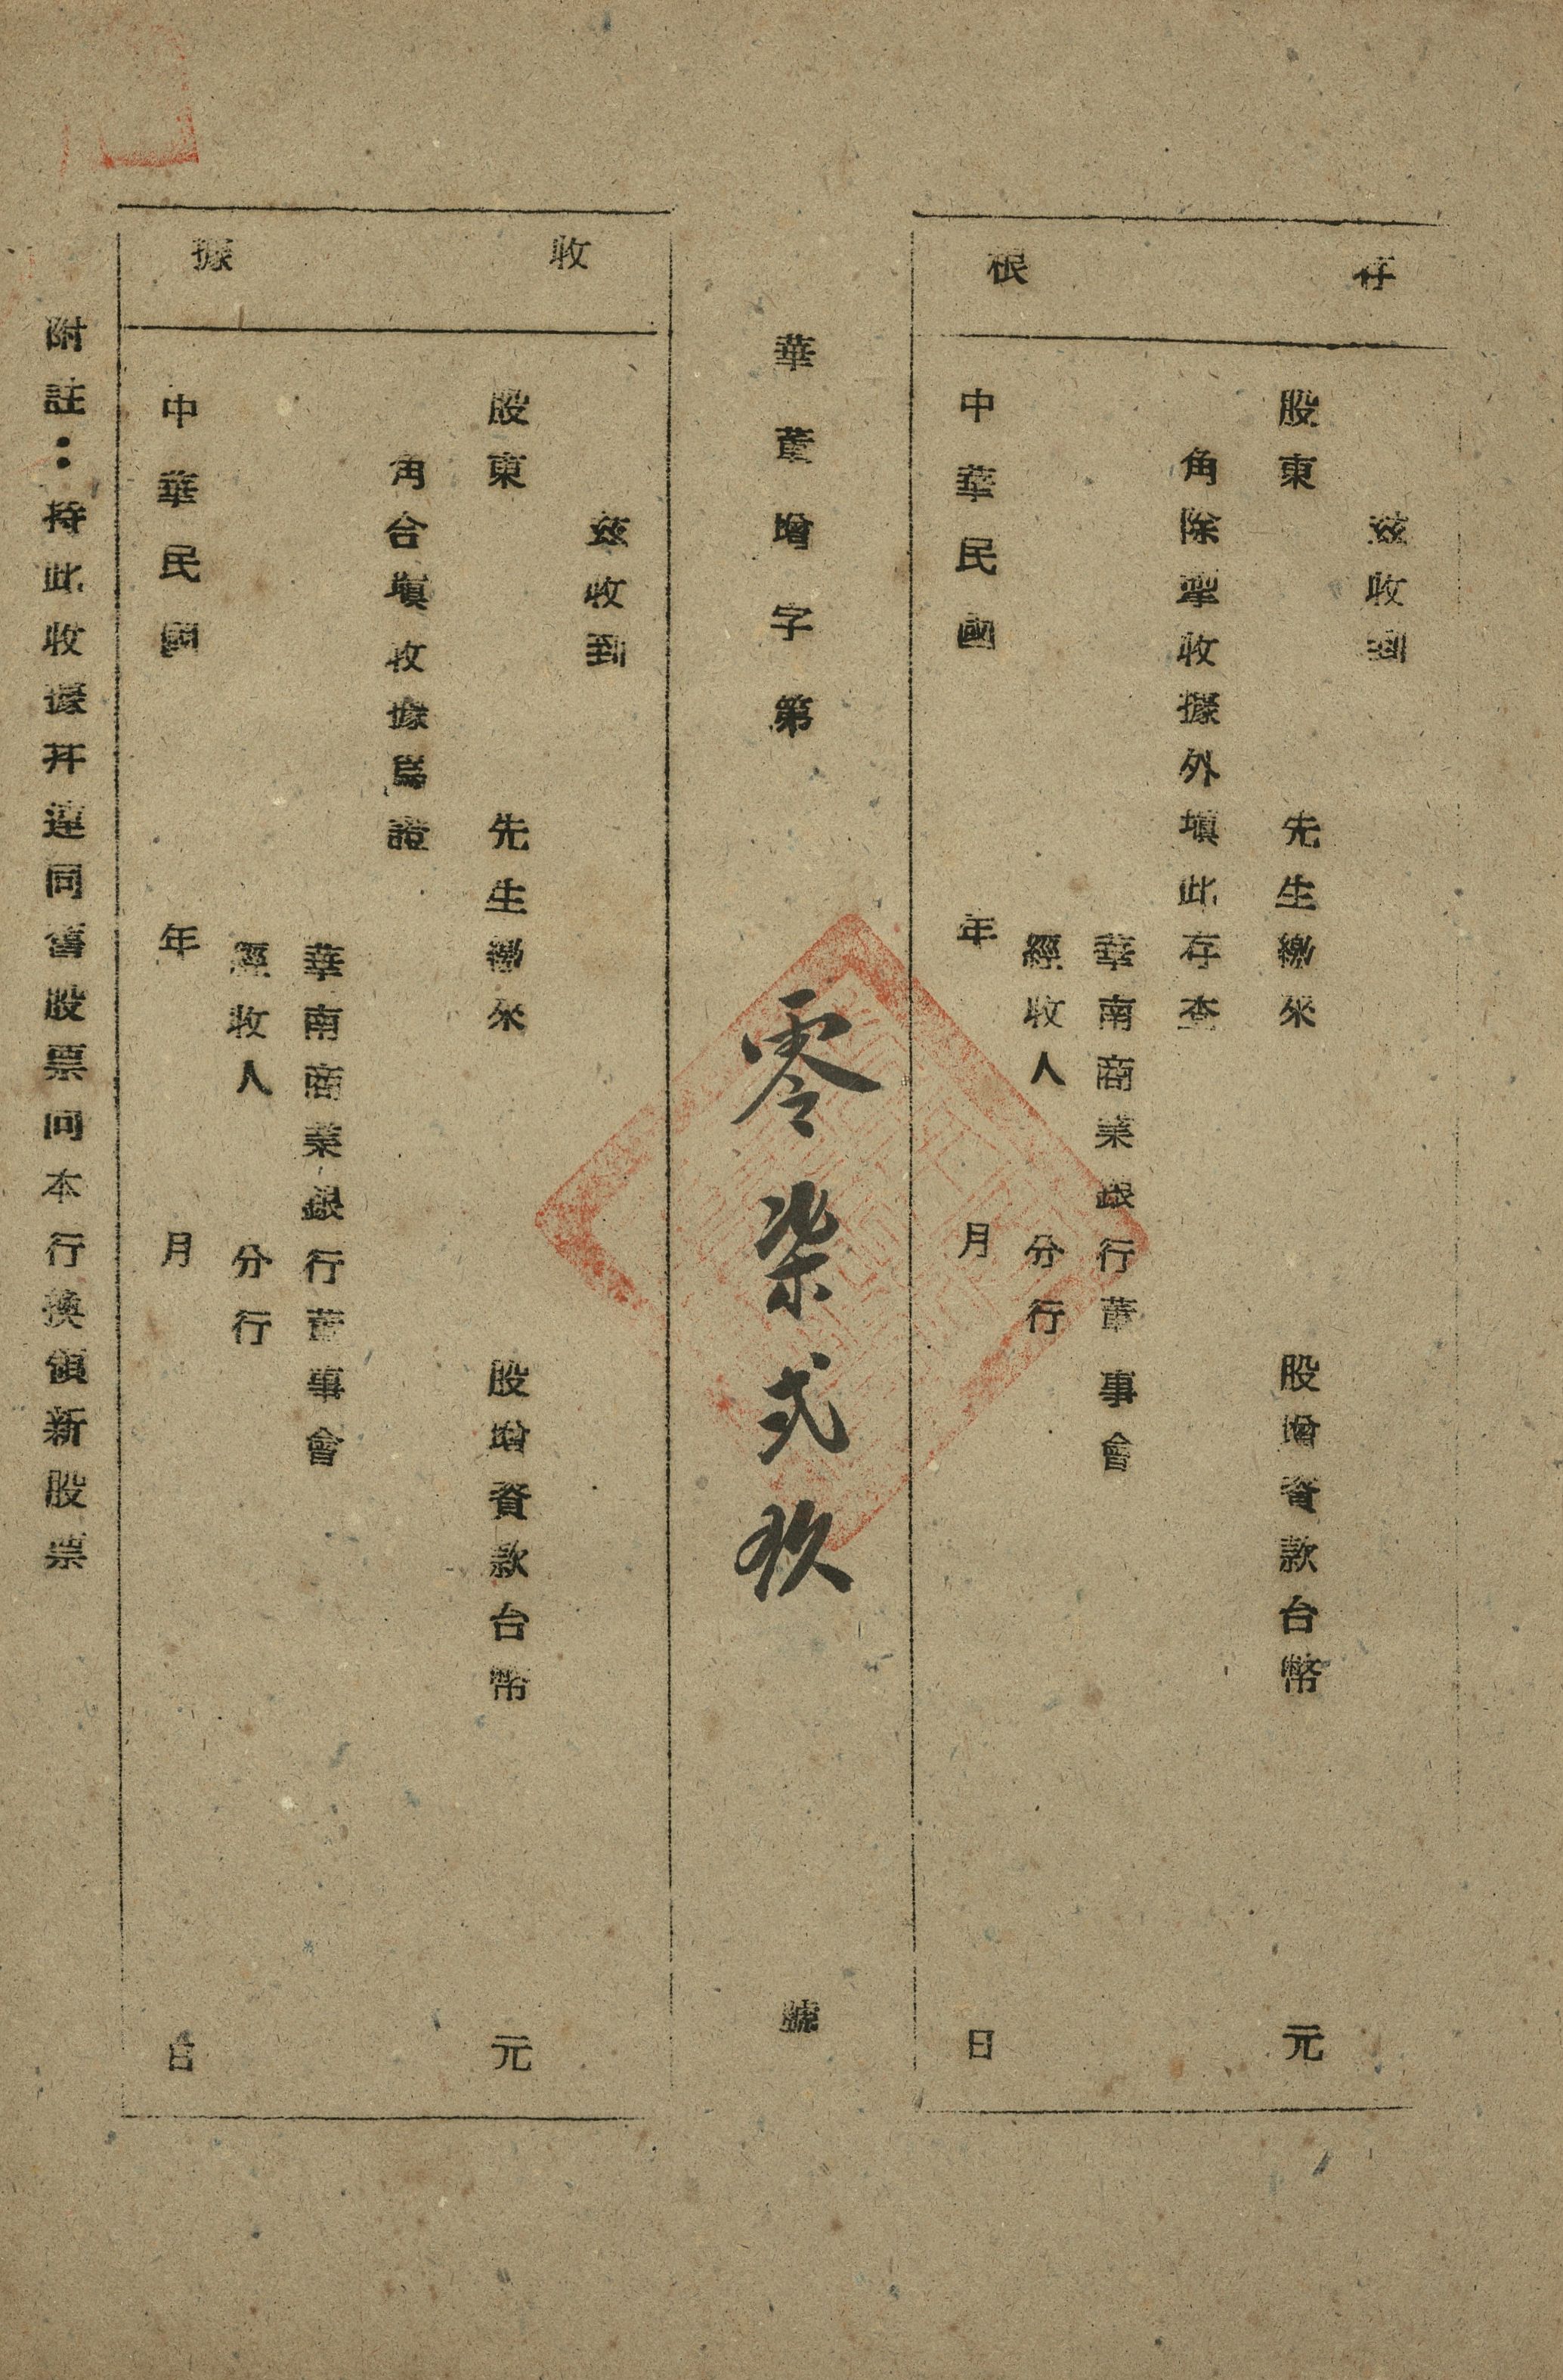 存根
茲收到
股東 先生繳來 股增資款台幣 元
角除掣收據外填此存查
華南商業銀行董事會
經收人 分行
中華民國 年 月 日
華董增字第 零柒弍玖 號
收據
茲收到
股東 先生繳來 股增資款台幣 元
角合塡收據爲證
華南商業銀行董事會
經收人 分行
中華民國 年 月 日
附註：持此收據幷連同舊股票向本行換領新股票